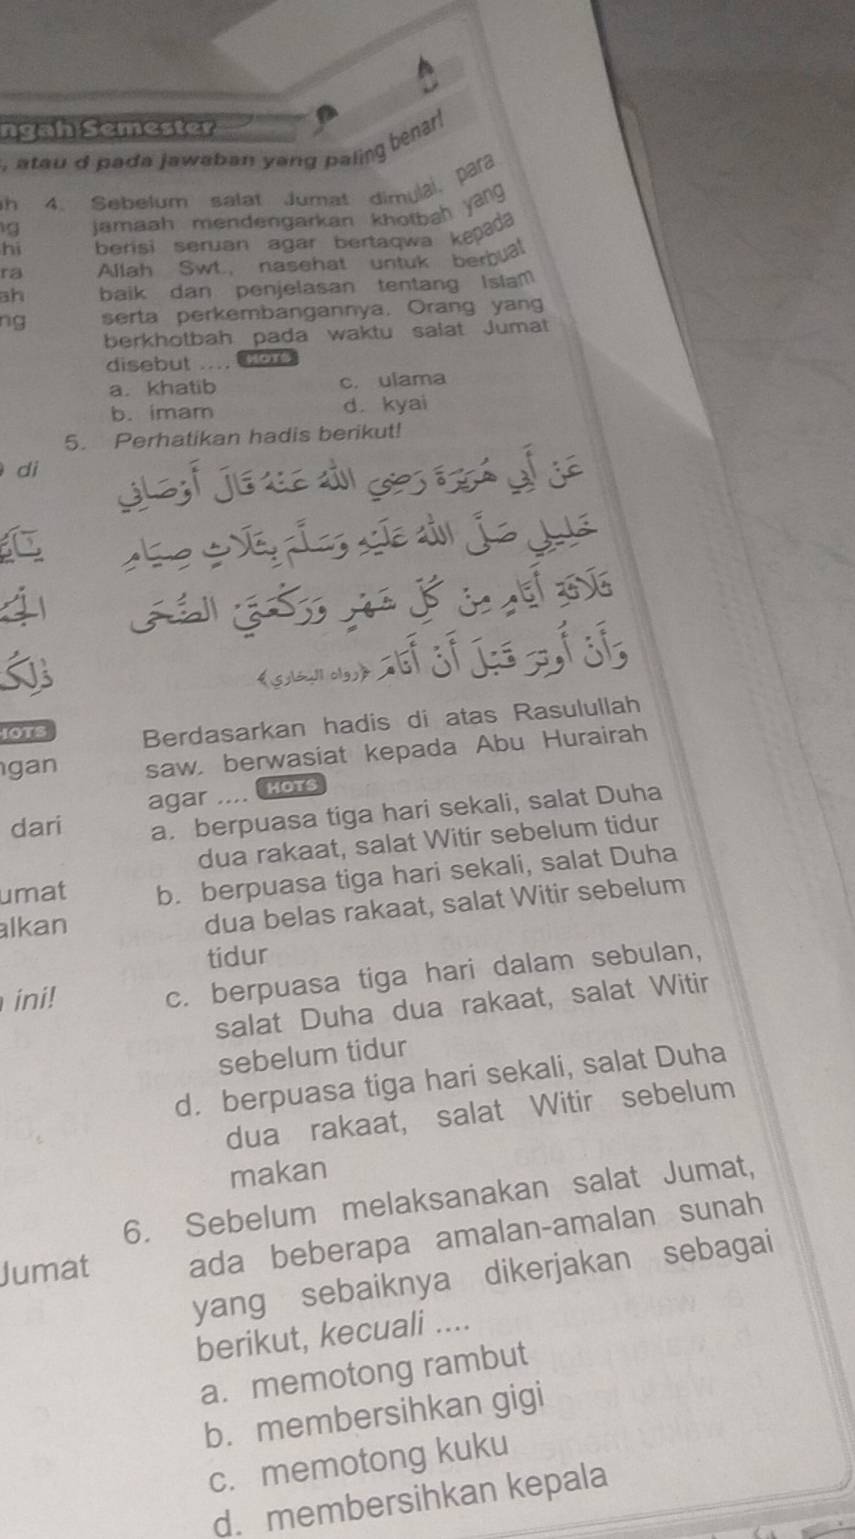 ngah Semester
, atau d pada jawaban yang paling benar!
h
g
hi
ra
ah
ng
4. Sebelum salat Jumat dimulai, para
jamaah mendengarkan khotbah yang
berisi seruan agar bertaqwa kepada
Allah Swt., nasehat untuk berbuat
baik dan penjelasan tentang Islam
serta perkembangannya. Orang yang
berkhotbah pada waktu salat Jumat
disebut .... HOTS
a. khatib
b. imam
c. ulama
d. kyai
5. Perhatikan hadis berikut!
di
عَنْ أَبِي هُرَيْرَةَ رَضِيَ اللهُ عَنْهُ قَالَ أَوْصَانِي
خَلِيلِي صَلَّى اللهُ عَلَيْهِ وَسَلَّمَ بِثَلَاثٍ صِيَامِ
ثَلَاثَةِ أَيَّامٍ مِنْ كُلِّ شَهْرٍ وَرَكْعَتَيِ الضُّحَى
وَأَنْ أُوتِرَ قَبْلَ أَنْ أَنَامَ ﴿رواه البخاري﴾
HOTS
ngan
dari
umat
alkan
ini!
Jumat
Berdasarkan hadis di atas Rasulullah
saw. berwasiat kepada Abu Hurairah
agar .... HOTS
a. berpuasa tiga hari sekali, salat Duha
dua rakaat, salat Witir sebelum tidur
b. berpuasa tiga hari sekali, salat Duha
dua belas rakaat, salat Witir sebelum
tidur
c. berpuasa tiga hari dalam sebulan,
salat Duha dua rakaat, salat Witir
sebelum tidur
d. berpuasa tiga hari sekali, salat Duha
dua rakaat, salat Witir sebelum
makan
6. Sebelum melaksanakan salat Jumat,
ada beberapa amalan-amalan sunah
yang sebaiknya dikerjakan sebagai
berikut, kecuali ....
a. memotong rambut
b. membersihkan gigi
c. memotong kuku
d. membersihkan kepala